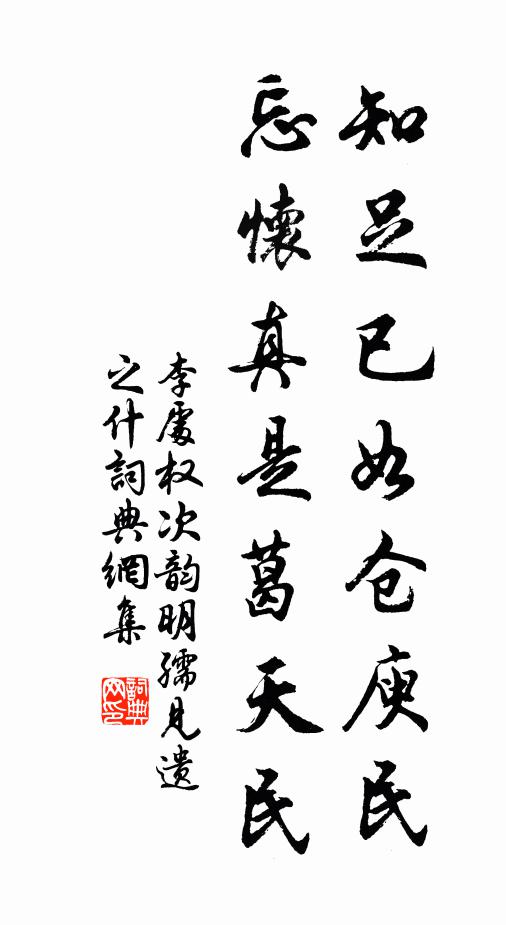 知足已如仓庾民
忘懷真是葛天民
李處权次韵明孺見遗
之什詞典網集
詞典网印